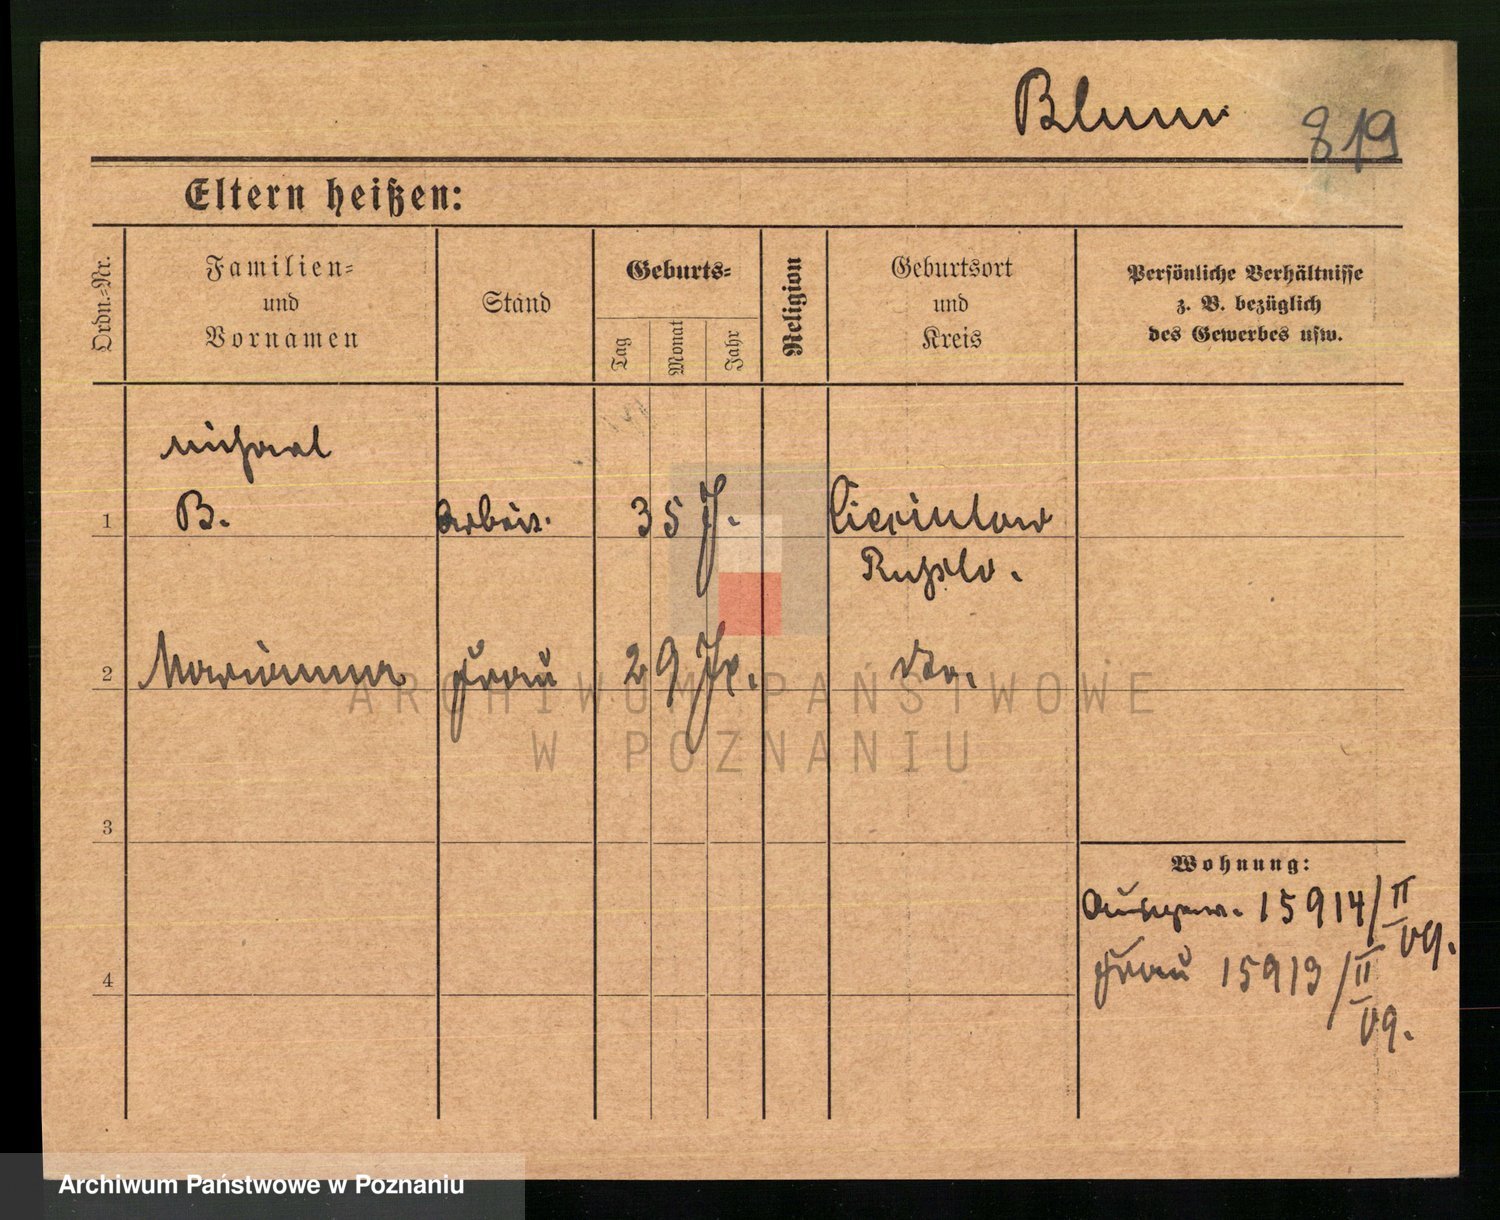 Blum
819
Eltern heißen:
Ordn.-Nr.
Familien-
und
Vornamen
Stand
Geburts-
Tag
Monat
Jahr
Religion
Geburtsort
und
Kreis
Persönliche Verhältnisse
z. B. bezüglich
des Gewerbes usw.
Michael
1 B. Arbeit. 35 J.
Rußld.
2 Marianna Frau 29 J. do.
3
Wohnung:
15914/II 09.
4
Frau 15913/II 09.
ARCHIWUM PAŃSTWOWE
W POZNANIU
Archiwum Państwowe w Poznaniu